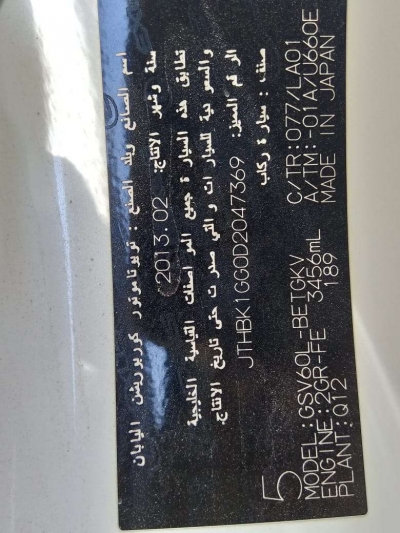 اسم الصانع وبلد الصنع : تويوتاموتور كوربوريشن اليابان
سنة وشهر الانتاج: 2013.02
تطابق هذه السيارة جميع المواصفات القياسية الخليجية
والسعودية للسيارات والتي صدرت حتى تاريخ الانتاج.
الرقم المميز: JTHBK1GG0D2047369
صنف : سيارة ركاب
5
MODEL:GSV60L-BETGKV C/TR:077/LA01
ENGINE:2GR-FE 3456mL A/TM:-01A/U660E
PLANT:Q12 189 MADE IN JAPAN